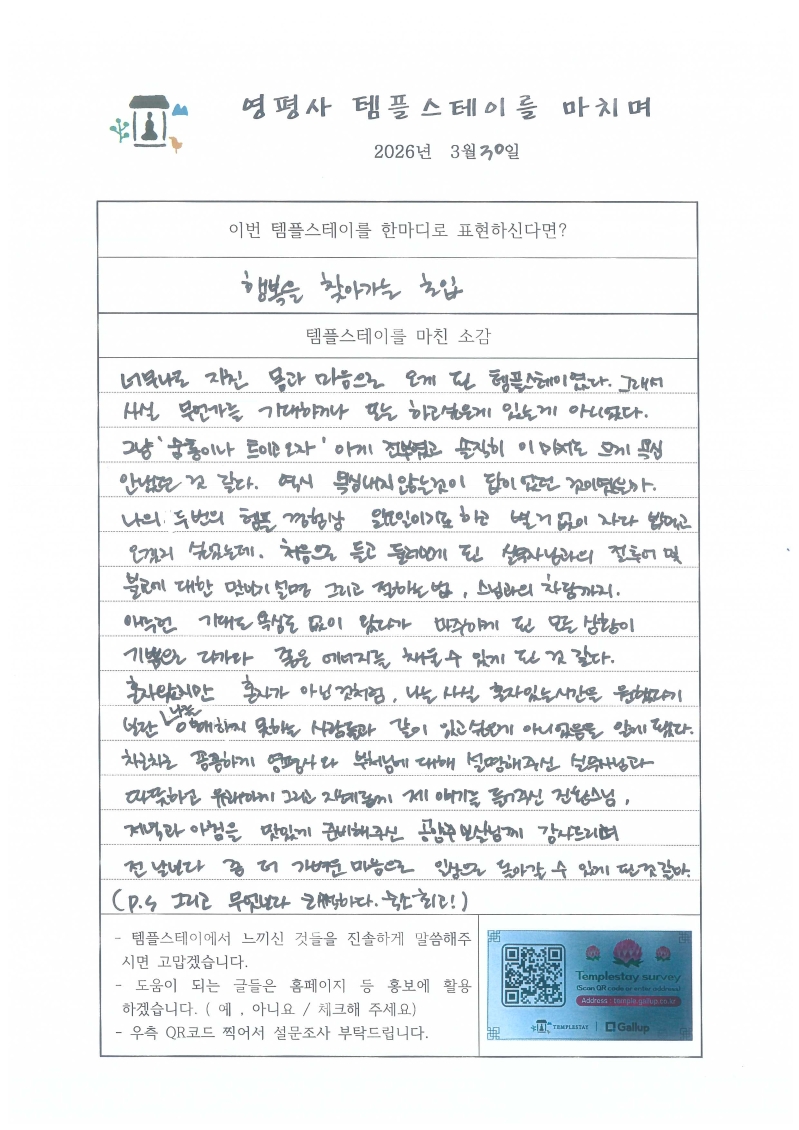 영평사 템플스테이를 마치며
2026년 3월 30일
이번 템플스테이를 한마디로 표현하신다면?
행복을 찾아가는 초입
템플스테이를 마친 소감
너무나도 지친 몸과 마음으로 오게 된 템플스테이였다. 그래서
사실 무언가를 기대하거나 또는 하고싶은게 있는게 아니었다.
그냥 '숨통이나 트이고 오자' 이게 전부였고 솔직히 이 마저도 크게 욕심
안냈던 것 같다. 역시 욕심내지 않는것이 답이 었던 것이였을까.
나의 두번의 템플 경험상 일요일이기도 하고 별거 없이 자다 밥먹고
오겠지 싶었는데. 처음으로 듣고 둘러보게 된 실무사님과의 절투어 및
불교에 대한 맛보기 설명 그리고 절하는 법, 스님과의 차담까지.
아무런 기대도 욕심도 없이 왔다가 마주하게 된 모든 상황이
기쁨으로 다가와 좋은 에너지를 채울 수 있게 된 것 같다.
혼자왔지만 혼자가 아닌 것처럼, 나는 사실 혼자있는시간을 원했다기
보단 나를 이해하지 못하는 사람들과 같이 있고 싶은게 아니었음을 알게 됐다.
차근차근 꼼꼼하게 영평사와 부처님에 대해 설명해주신 실무사님과
따뜻하고 유쾌하게 그리고 지혜롭게 제 얘기를 들어주신 스님,
저녁과 아침을 맛있게 준비해주신 공양주보살님께 감사드리며
전 날보다 좀 더 가벼운 마음으로 일상으로 돌아갈 수 있게 된것 같아.
(p.s 그리고 무엇보다 쾌적하다. 숙소 최고!)
- 템플스테이에서 느끼신 것들을 진솔하게 말씀해주
시면 고맙겠습니다.
- 도움이 되는 글들은 홈페이지 등 홍보에 활용
하겠습니다. ( 예 , 아니요 / 체크해 주세요)
- 우측 QR코드 찍어서 설문조사 부탁드립니다.
Templestay survey
(Scan QR code or enter address)
Address : temple.gallup.co.kr
TEMPLESTAY | Gallup